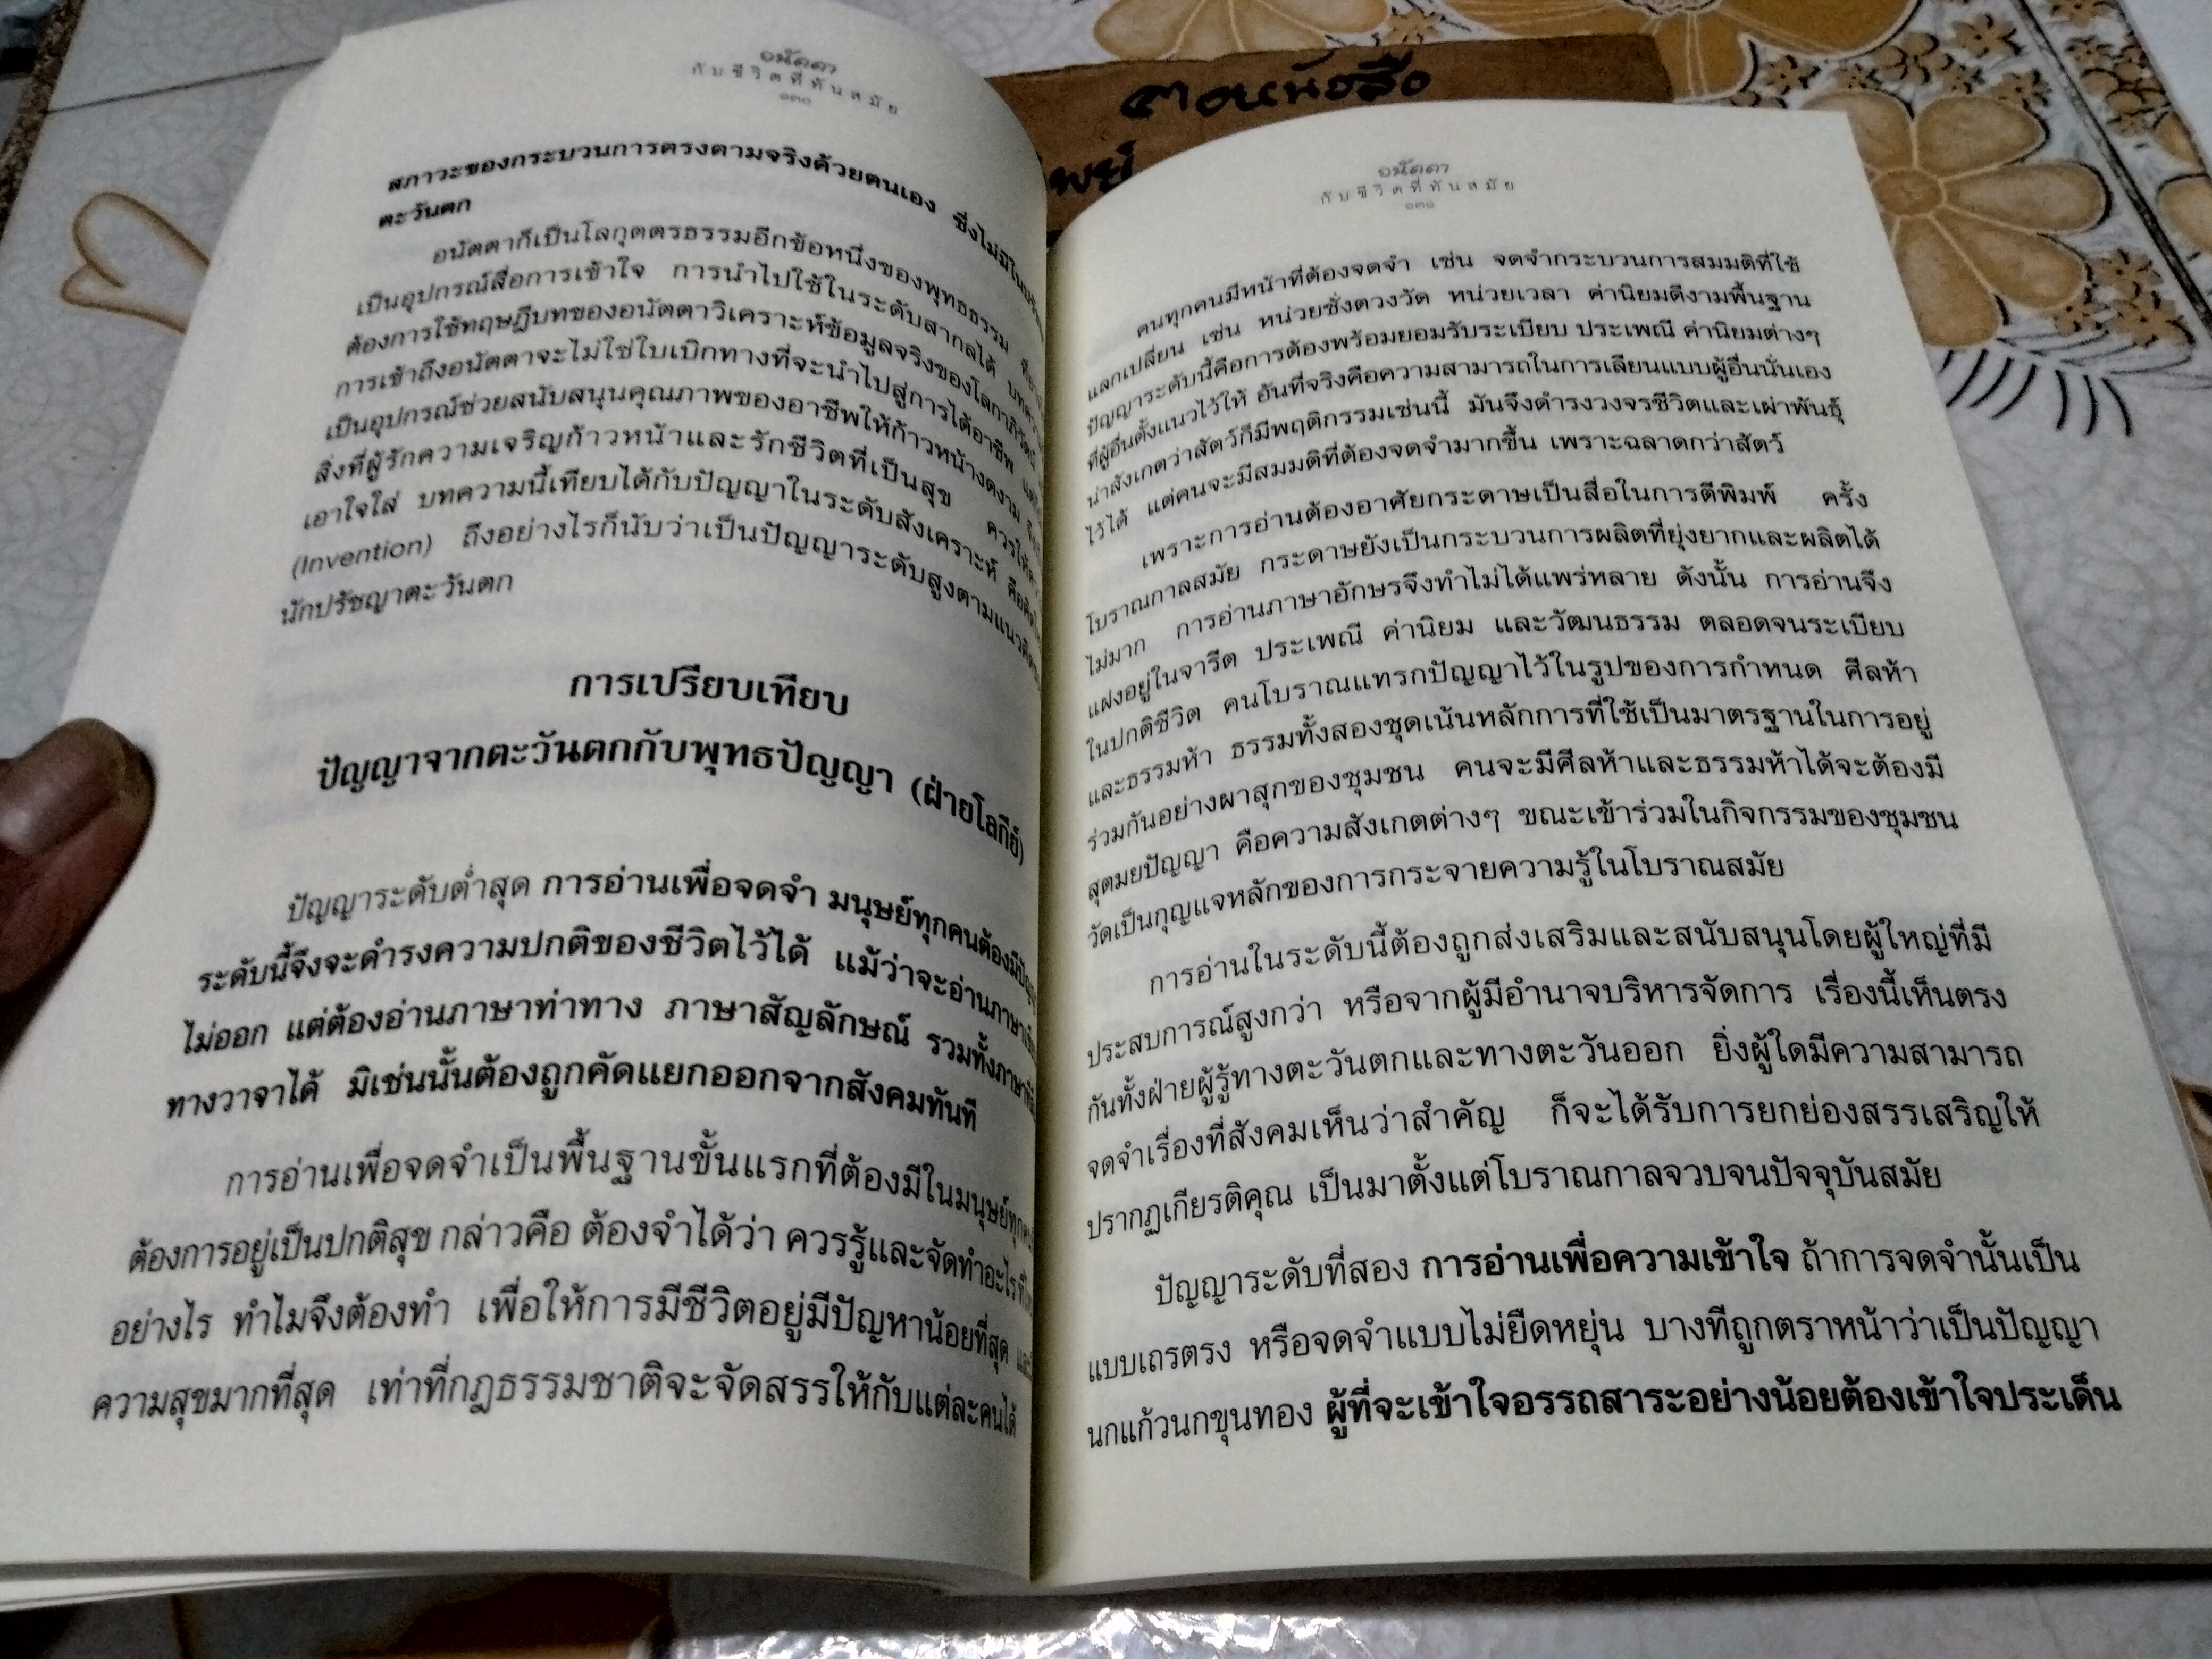 อนัตตา
กับชีวิตที่ทันสมัย
๑๓๐
สภาวะของกระบวนการตรงตามจริงด้วยตนเอง ซึ่งไม่มีใน
ตะวันตก
อนัตตาก็เป็นโลกุตตรธรรมอีกข้อหนึ่งของพุทธธรรม
เป็นอุปกรณ์สื่อการเข้าใจ การนำไปใช้ในระดับสากลได้
ต้องการใช้ทฤษฎีบทของอนัตตาวิเคราะห์ข้อมูลจริงของโลกาภิวัตน์
การเข้าถึงอนัตตาจะไม่ใช่ใบเบิกทางที่จะนำไปสู่การได้อาชีพ
เป็นอุปกรณ์ช่วยสนับสนุนคุณภาพของอาชีพให้ก้าวหน้างดงาม
สิ่งที่ผู้รักความเจริญก้าวหน้าและรักชีวิตที่เป็นสุข ควรให้
เอาใจใส่ บทความนี้เทียบได้กับปัญญาในระดับสังเคราะห์
(Invention) ถึงอย่างไรก็นับว่าเป็นปัญญาระดับสูงตามแนว
นักปรัชญาตะวันตก
การเปรียบเทียบ
ปัญญาจากตะวันตกกับพุทธปัญญา (ฝ่ายโลกีย์)
ปัญญาระดับต่ำสุด การอ่านเพื่อจดจำ มนุษย์ทุกคนต้องมีปัญญา
ระดับนี้จึงจะดำรงความปกติของชีวิตไว้ได้ แม้ว่าจะอ่านภาษา
ไม่ออก แต่ต้องอ่านภาษาท่าทาง ภาษาสัญลักษณ์ รวมทั้งภาษา
ทางวาจาได้ มิเช่นนั้นต้องถูกคัดแยกออกจากสังคมทันที
การอ่านเพื่อจดจำเป็นพื้นฐานขั้นแรกที่ต้องมีในมนุษย์ทุกคน
ต้องการอยู่เป็นปกติสุข กล่าวคือ ต้องจำได้ว่า ควรรู้และจัดทำอะไร
อย่างไร ทำไมจึงต้องทำ เพื่อให้การมีชีวิตอยู่มีปัญหาน้อยที่สุด
ความสุขมากที่สุด เท่าที่กฎธรรมชาติจะจัดสรรให้กับแต่ละคนได้
ตอนหนังสือ
อนัตตา
กับชีวิตที่ทันสมัย
๑๓๑
คนทุกคนมีหน้าที่ต้องจดจำ เช่น จดจำกระบวนการสมมติที่ใช้
แลกเปลี่ยน เช่น หน่วยชั่งตวงวัด หน่วยเวลา ค่านิยมดีงามพื้นฐาน
ปัญญาระดับนี้คือการต้องพร้อมยอมรับระเบียบ ประเพณี ค่านิยมต่างๆ
ที่ผู้อื่นตั้งแนวไว้ให้ อันที่จริงคือความสามารถในการเลียนแบบผู้อื่นนั่นเอง
น่าสังเกตว่าสัตว์ก็มีพฤติกรรมเช่นนี้ มันจึงดำรงวงจรชีวิตและเผ่าพันธุ์
ไว้ได้ แต่คนจะมีสมมติที่ต้องจดจำมากขึ้น เพราะฉลาดกว่าสัตว์
เพราะการอ่านต้องอาศัยกระดาษเป็นสื่อในการตีพิมพ์ ครั้ง
โบราณกาลสมัย กระดาษยังเป็นกระบวนการผลิตที่ยุ่งยากและผลิตได้
ไม่มาก การอ่านภาษาอักษรจึงทำไม่ได้แพร่หลาย ดังนั้น การอ่านจึง
แฝงอยู่ในจารีต ประเพณี ค่านิยม และวัฒนธรรม ตลอดจนระเบียบ
ในปกติชีวิต คนโบราณแทรกปัญญาไว้ในรูปของการกำหนด ศีลห้า
และธรรมห้า ธรรมทั้งสองชุดเน้นหลักการที่ใช้เป็นมาตรฐานในการอยู่
ร่วมกันอย่างผาสุกของชุมชน คนจะมีศีลห้าและธรรมห้าได้จะต้องมี
สุตมยปัญญา คือความสังเกตต่างๆ ขณะเข้าร่วมในกิจกรรมของชุมชน
วัดเป็นกุญแจหลักของการกระจายความรู้ในโบราณสมัย
การอ่านในระดับนี้ต้องถูกส่งเสริมและสนับสนุนโดยผู้ใหญ่ที่มี
ประสบการณ์สูงกว่า หรือจากผู้มีอำนาจบริหารจัดการ เรื่องนี้เห็นตรง
กันทั้งฝ่ายผู้รู้ทางตะวันตกและทางตะวันออก ยิ่งผู้ใดมีความสามารถ
จดจำเรื่องที่สังคมเห็นว่าสำคัญ ก็จะได้รับการยกย่องสรรเสริญให้
ปรากฏเกียรติคุณ เป็นมาตั้งแต่โบราณกาลจวบจนปัจจุบันสมัย
ปัญญาระดับที่สอง การอ่านเพื่อความเข้าใจ ถ้าการจดจำนั้นเป็น
แบบเถรตรง หรือจดจำแบบไม่ยืดหยุ่น บางทีถูกตราหน้าว่าเป็นปัญญา
นกแก้วนกขุนทอง ผู้ที่จะเข้าใจอรรถสาระอย่างน้อยต้องเข้าใจประเด็น